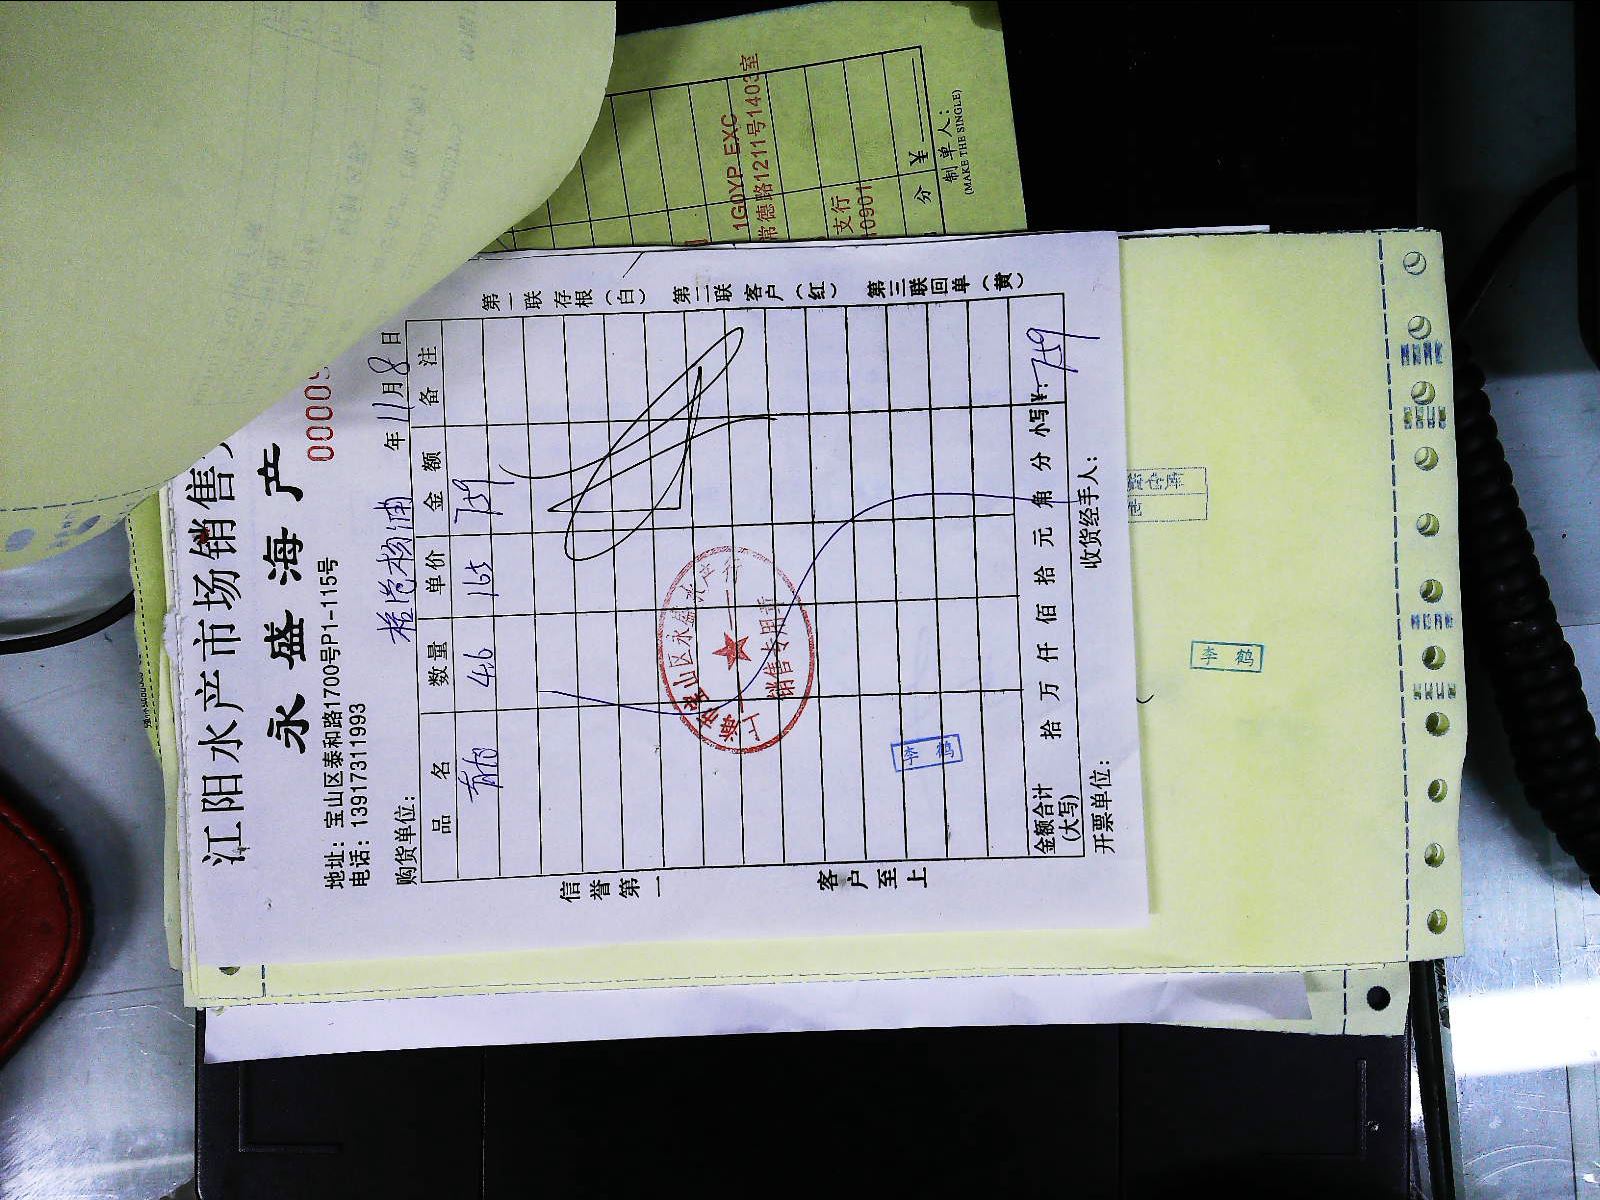 江阳水产市场销售
永盛海产
00005
地址：宝山区泰和路1700号P1-115号
电话：13917311993
购货单位：
年11月8日
品名 数量 单价 金额 备注
4.6 165 759
信誉第一
客户至上
第一联存根（白） 第二联客户（红） 第三联回单（黄）
山区永盛水产行
销售专用章
李鹤
金额合计
(大写)
拾 万 仟 佰 拾 元 角 分 小写¥: 759
开票单位：
收货经手人：
李鹤
1G0YP EXC
常德路1211号1403室
支行
10901
分 ¥
制单人：
(MAKE THE SINGLE)